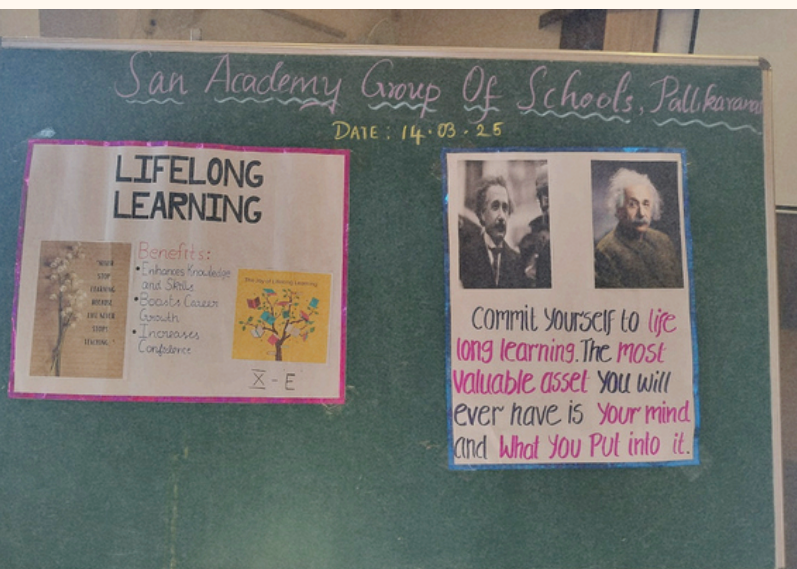 San Academy Group Of Schools, Pallikarana
DATE: 14.03.25
LIFELONG
LEARNING
"NEVER
STOP
LEARNING
BECAUSE
LIFE NEVER
STOPS
TEACHING."
Benefits:
• Enhances Knowledge
and Skills
• Boosts Career
Growth
• Increases
Confidence
The Joy of Lifelong Learning
X - E
Commit Yourself to life
long learning. The most
valuable asset you will
ever have is your mind
and what you Put into it.